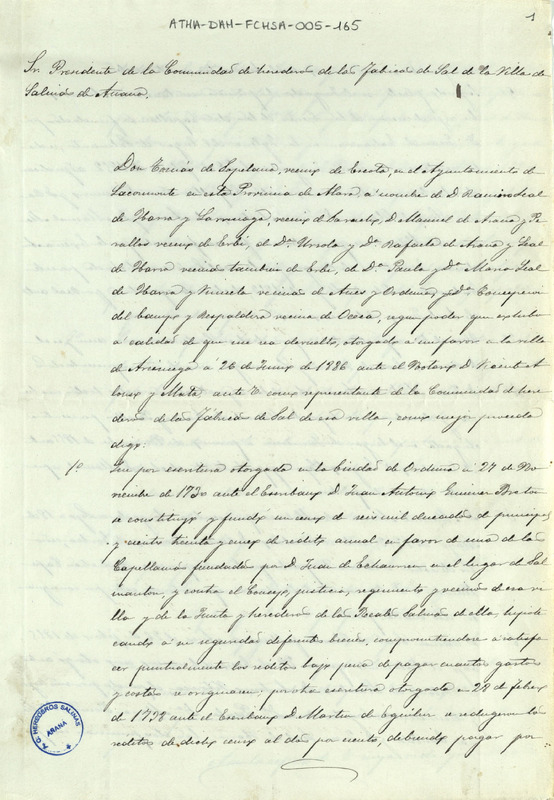 ATHA-DAH-FCHSA-005-165
1
Sr. Presidente de la Comunidad de herederos de las Fábricas de Sal de la Villa de
Salinas de Añana.
Don Tomás de Sopelana, vecino de Escota, en el Ayuntamiento de
Lacozmonte en esta Provincia de Alava, á nombre de D. Ramiro Leal
de Ibarra y Larreaga, vecino de D. Manuel de Arana y Pe-
rallos vecino de Erbi, de Dª Ursola y Dª Rafaela de Arana y Leal
de Ibarra vecinas tambien de Erbi, de Dª Paula y Dª Maria Leal
de Ibarra y vecinas de y Orduña, y Dª Concepcion
del Campo y Respaldiza vecina de Oceca, segun poder que exhibo
a calidad de que me sea devuelto, otorgado á mi favor en la villa
de Arciniega á 26 de Junio de 1886 ante el Notario D. Vicente A-
y Mata ante V. como representante de la Comunidad de here-
deros de las Fábricas de Sal de esa villa, como mejor proceda
digo:
1º Que por escritura otorgada en la Ciudad de Orduña á 27 de No-
viembre de 1730 ante el Escribano D. Juan Antonio Gimenez Breton
se constituyó y fundó un censo de seis mil ducados de principal
y ciento treinta y cinco de reditos annual en favor de una de las
Capellanias fundadas por D. Juan de Echavarren en el lugar de Sal-
manton, y contra el Concejo, justicia, regimiento y vecinos de esa vi-
lla y de la Junta y herederos de las Reales Salinas de ella, hipote-
cando á su seguridad diferentes bienes, comprometiendose á satisfa-
cer puntualmente los reditos bajo pena de pagar cuantos gastos
y costas se originasen; por otra escritura otorgada en 28 de Febrero
de 1738 ante el Escribano D. Martin de Eguiluz se redugeron los
reditos de dicho censo al dos por ciento, debiendo pagar por
A. C. HEREDEROS SALINAS
AÑANA